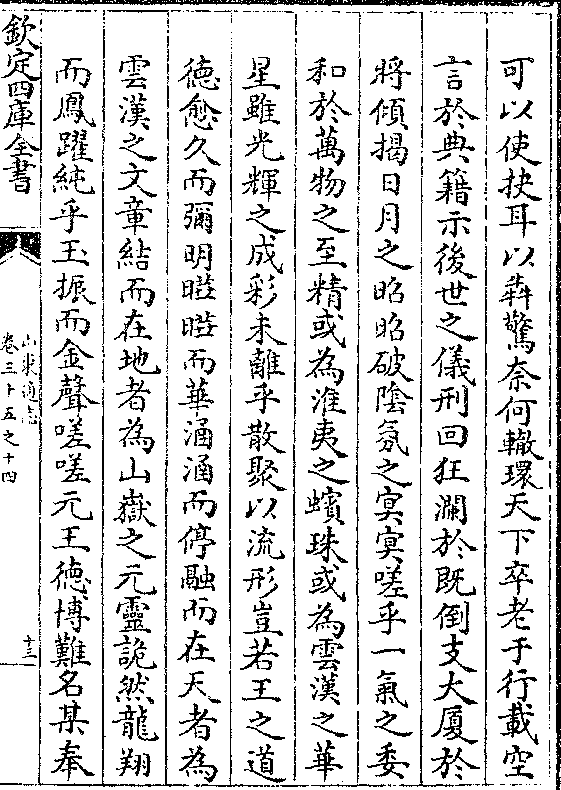 可以使抉耳以犇驚奈何轍環天下卒老于行載空
言於典籍示後世之儀刑回狂瀾於既倒支大厦於
將傾揭日月之昭昭破陰氛之㝠㝠嗟乎一氣之委
和於萬物之至精或為淮夷之蠙珠或為雲漢之華
星雖光輝之成彩未離乎散聚以流形豈若王之道
德愈久而彌明曖曖而華涵涵而停融而在天者為
雲漢之文章結而在地者為山嶽之元靈詭然龍翔
而鳳躍純乎玉振而金聲嗟嗟元王德博難名某奉
欽定四庫全書
山東通志
卷三十五之十四
十三